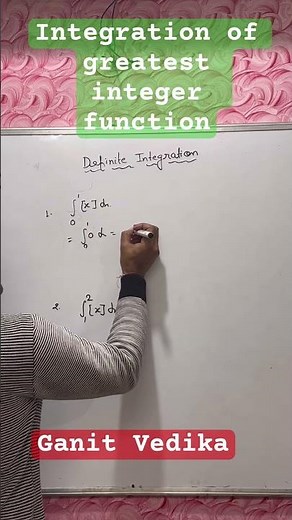 Integration of
greatest
integer
function
Definite Integration
1. ∫₀¹ [x] dx
= ∫₀¹ 0 dx =
2. ∫₁² [x] dx
Ganit Vedika